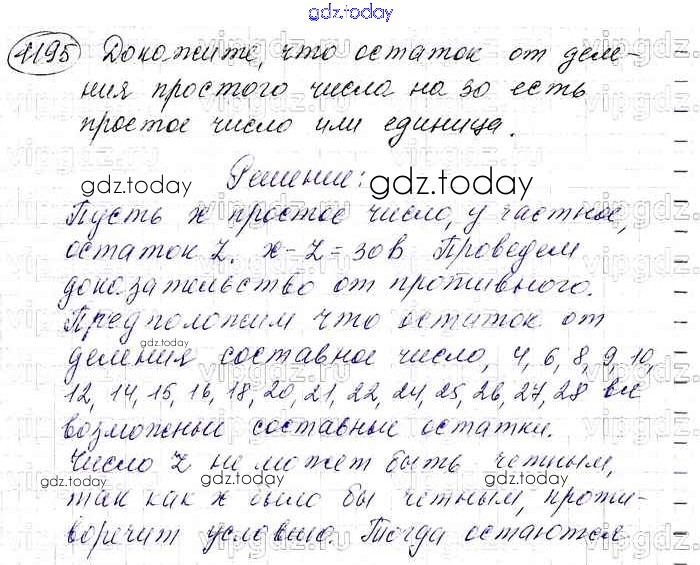 gdz.today
1195 Докажите, что остаток от деле-
ния простого числа на 30 есть
простое число или единица.
gdz.today Решение: gdz.today
Пусть x простое число, y частное,
остаток z. x-z=30в Проведем
доказательство от противного.
Предположим что остаток от
деления составное число, 4, 6, 8, 9, 10,
12, 14, 15, 16, 18, 20, 21, 22, 24, 25, 26, 27, 28 все
возможные составные остатки.
Число z не может быть четным,
так как x было бы четным, проти-
воречит условию. Тогда остаются
gdz.today